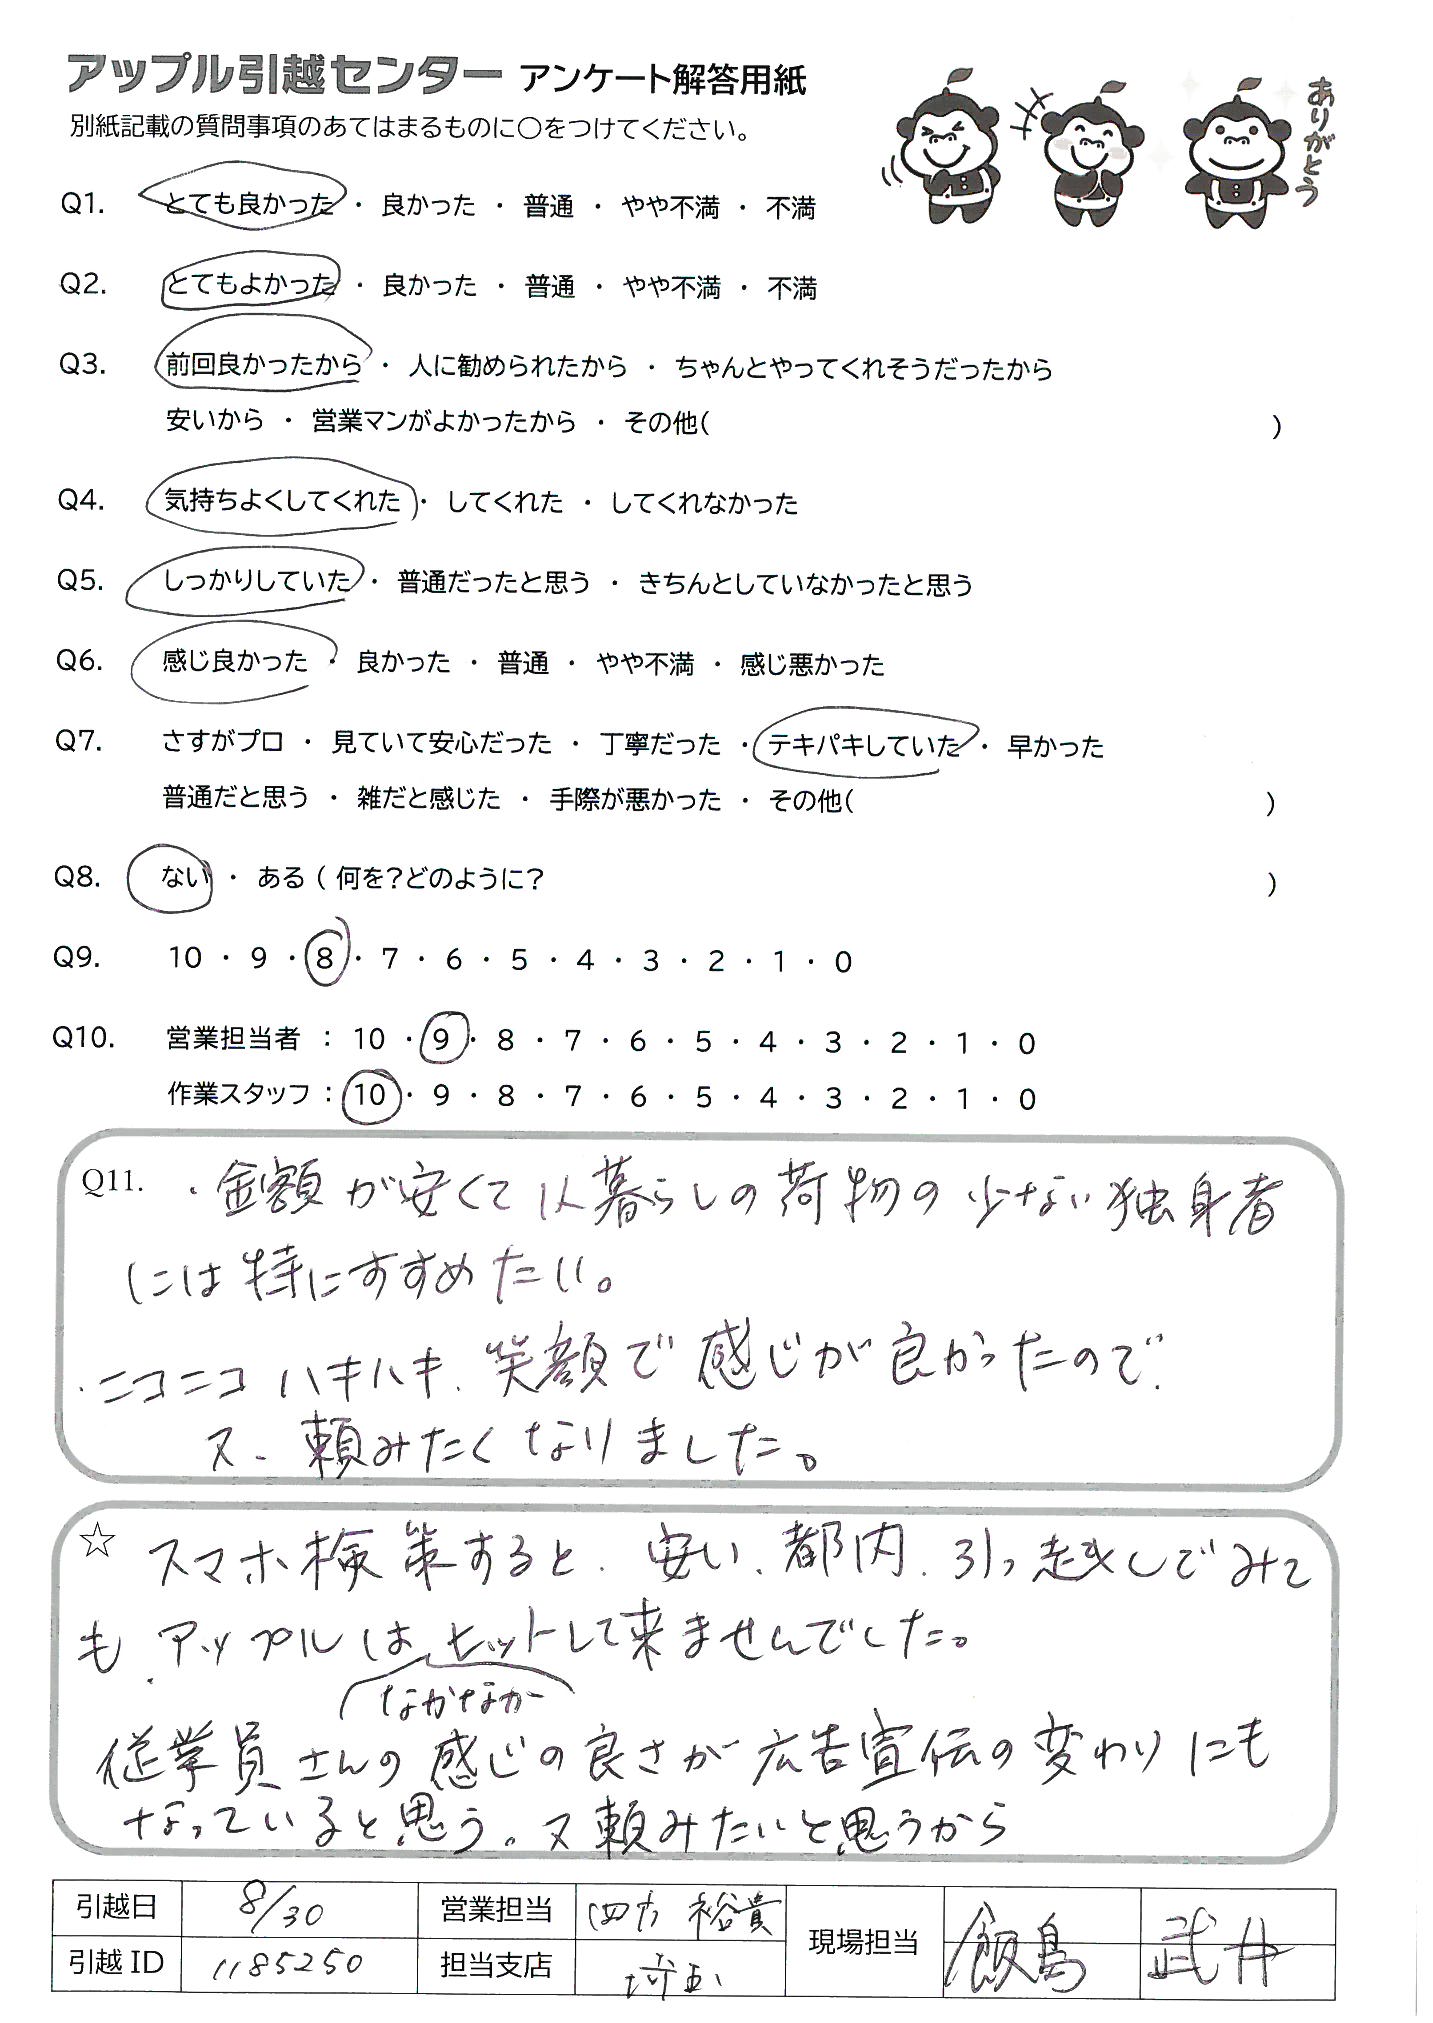 アップル引越センター アンケート解答用紙
ありがとう
別紙記載の質問事項のあてはまるものに〇をつけてください。
Q1. とても良かった ・ 良かった ・ 普通 ・ やや不満 ・ 不満
Q2. とてもよかった ・ 良かった ・ 普通 ・ やや不満 ・ 不満
Q3. 前回良かったから ・ 人に勧められたから ・ ちゃんとやってくれそうだったから
安いから ・ 営業マンがよかったから ・ その他( )
Q4. 気持ちよくしてくれた ・ してくれた ・ してくれなかった
Q5. しっかりしていた ・ 普通だったと思う ・ きちんとしていなかったと思う
Q6. 感じ良かった ・ 良かった ・ 普通 ・ やや不満 ・ 感じ悪かった
Q7. さすがプロ ・ 見ていて安心だった ・ 丁寧だった ・ テキパキしていた ・ 早かった
普通だと思う ・ 雑だと感じた ・ 手際が悪かった ・ その他( )
Q8. ない ・ ある ( 何を?どのように? )
Q9. 10 ・ 9 ・ 8 ・ 7 ・ 6 ・ 5 ・ 4 ・ 3 ・ 2 ・ 1 ・ 0
Q10. 営業担当者 : 10 ・ 9 ・ 8 ・ 7 ・ 6 ・ 5 ・ 4 ・ 3 ・ 2 ・ 1 ・ 0
作業スタッフ : 10 ・ 9 ・ 8 ・ 7 ・ 6 ・ 5 ・ 4 ・ 3 ・ 2 ・ 1 ・ 0
Q11. ・金額が安くて1人暮らしの荷物の少ない独身者
には特にすすめたい。
・ニコニコ ハキハキ、笑顔で感じが良かったので、
又、頼みたくなりました。
☆ スマホ検策すると、安い、都内、引っ越しでみて
も、アップルはヒットして来ませんでした。
なかなか
従業員さんの感じの良さが広告宣伝の変わりにも
なっていると思う。又頼みたいと思うから
引越日 8/30 営業担当 四方 裕貴 現場担当 飯島 武井
引越ID 1185250 担当支店 埼玉